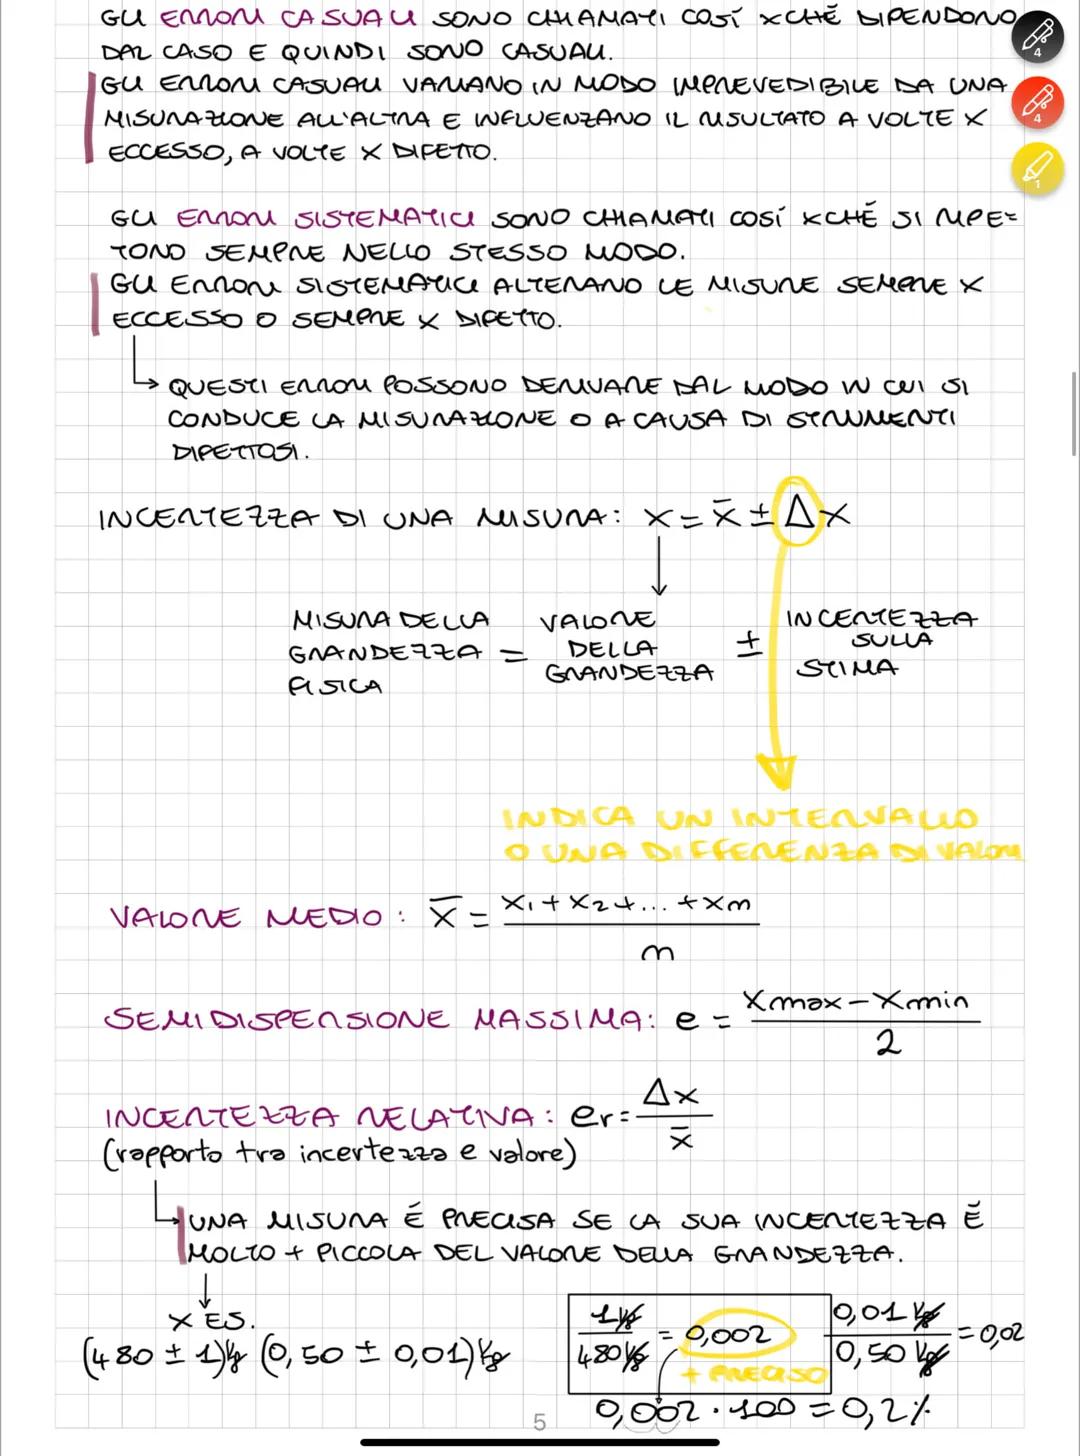 GLI ERRORI CASUALI SONO CHIAMATI COSÍ XCHÉ DIPENDONO
DAL CASO E QUINDI SONO CASUALI.
GLI ERRORI CASUALI VARIANO IN MODO IMPREVEDIBILE DA UNA
MISURAZIONE ALL'ALTRA E INFLUENZANO IL RISULTATO A VOLTE X
ECCESSO, A VOLTE X DIFETTO.
GLI ERRORI SISTEMATICI SONO CHIAMATI COSÍ XCHÉ SI RIPE=
TONO SEMPRE NELLO STESSO MODO.
GLI ERRORI SISTEMATICI ALTERANO LE MISURE SEMPRE X
ECCESSO O SEMPRE X DIFETTO.
QUESTI ERRORI POSSONO DERIVARE DAL MODO IN CUI SI
CONDUCE LA MISURAZIONE O A CAUSA DI STRUMENTI
DIFETTOSI.
INCERTEZZA DI UNA MISURA: x = x̄ ± Δx
MISURA DELLA GRANDEZZA FISICA = VALORE DELLA GRANDEZZA ± INCERTEZZA SULLA STIMA
INDICA UN INTERVALLO
O UNA DIFFERENZA DI VALORI
VALORE MEDIO: x̄ = (x₁ + x₂ + ... + xm) / m
SEMIDISPERSIONE MASSIMA: e = (xmax - xmin) / 2
INCERTEZZA RELATIVA: er = Δx / x̄
(rapporto tra incertezza e valore)
UNA MISURA É PRECISA SE LA SUA INCERTEZZA É
MOLTO + PICCOLA DEL VALORE DELLA GRANDEZZA.
X ES.
(480 ± 1)kg (0,50 ± 0,01)kg
1kg / 480kg = 0,002
+ PRECISO
0,01 kg / 0,50 kg = 0,02
0,002 · 100 = 0,2%
5
4
4
1